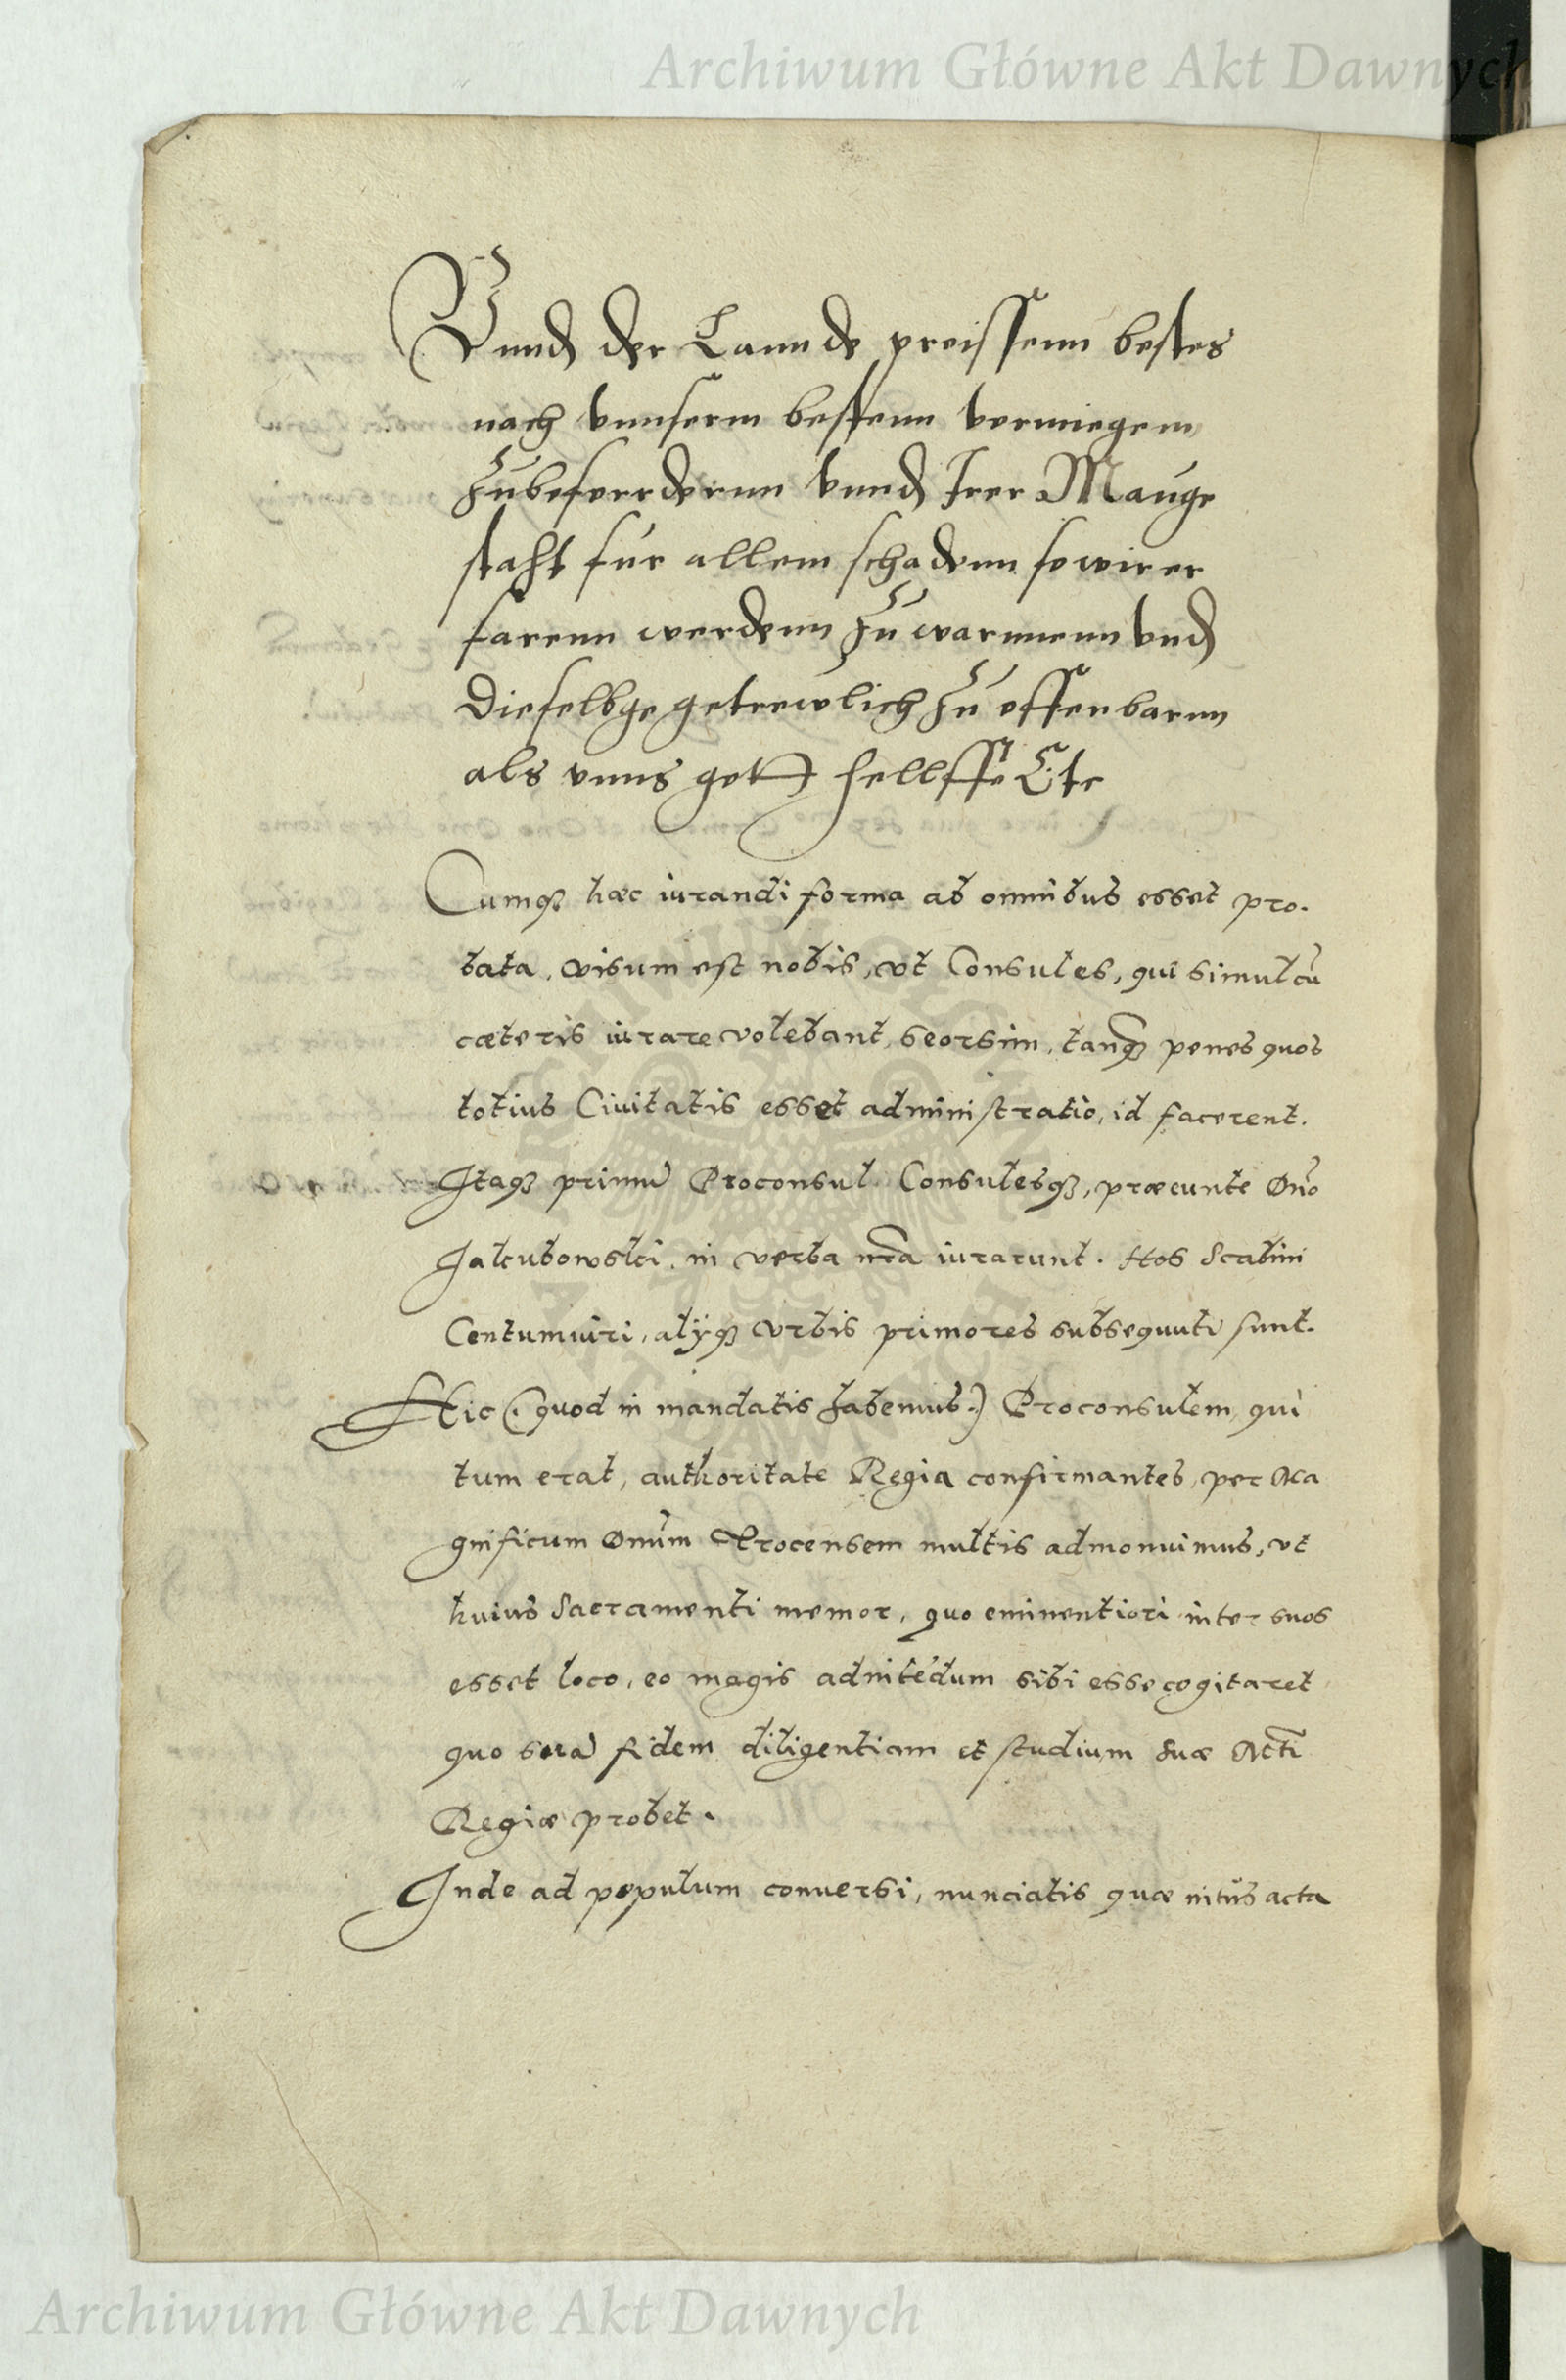 Archiwum Główne Akt Dawnych
Vnnd der Lannde preissenn bestes
nach vnnserm bestenn vermiegenn
Zubeferrdernn vnnd Irer Mauge
staht fur allem schadenn so wir er
farenn werdenn Zu warnnenn vnd
dieselbge getrewlich Zu offenbarnn
als vnns gott hellffe Etc
Cumq₃ hæc iurandi forma ab omnibus esset pro-
bata, visum est nobis, vt Consules, qui simul cū
cæteris iurare volebant, seorsim, tanq̃₃ penes quos
totius Ciuitatis esset administratio, id facerent.
Itaq₃ primū Proconsul Consulesq₃, præeunte Dño
Jakubowski, in verba nr̃a iurarunt. Hos Scabini
Centumuiri, alijq₃ vrbis primores subsequuti sunt.
Hic (quod in mandatis habemus.) Proconsulem, qui
tum erat, authoritate Regia confirmantes, per Ma
gnificum Dnũm Crocensem multis admonuimus, vt
huius Sacramenti memor, quo eminentiori inter suos
esset loco, eo magis adnitēdum sibi esse cogitaret
quo suā fidem diligentiam et studium Suæ Mt̃i
Regiæ probet.
Inde ad populum conuersi, nunciatis quæ intus acta
Archiwum Główne Akt Dawnych